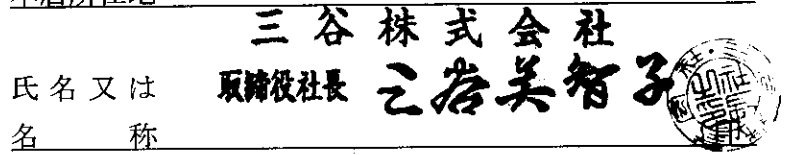 三谷株式会社
氏名又は 取締役社長 三谷美智子
名　　称